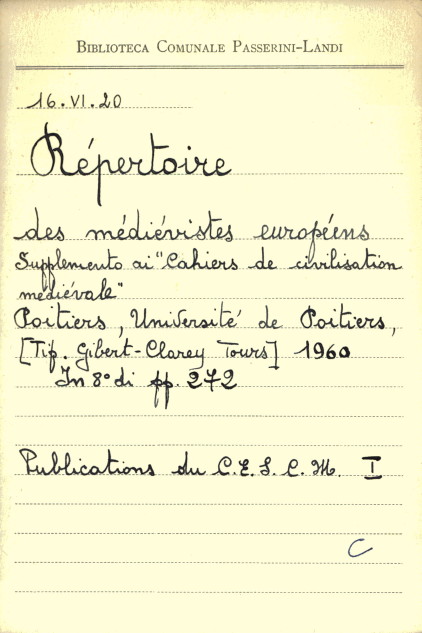 BIBLIOTECA COMUNALE PASSERINI-LANDI
16.VI.20
Répertoire
des médiévistes européens
Supplemento ai "Cahiers de civilisation
médiévale"
Poitiers, Université de Poitiers,
[Tip. Gibert-Clarey Tours] 1960
In 8° di pp. 272
Publications du C.E.S.C.M. I
C